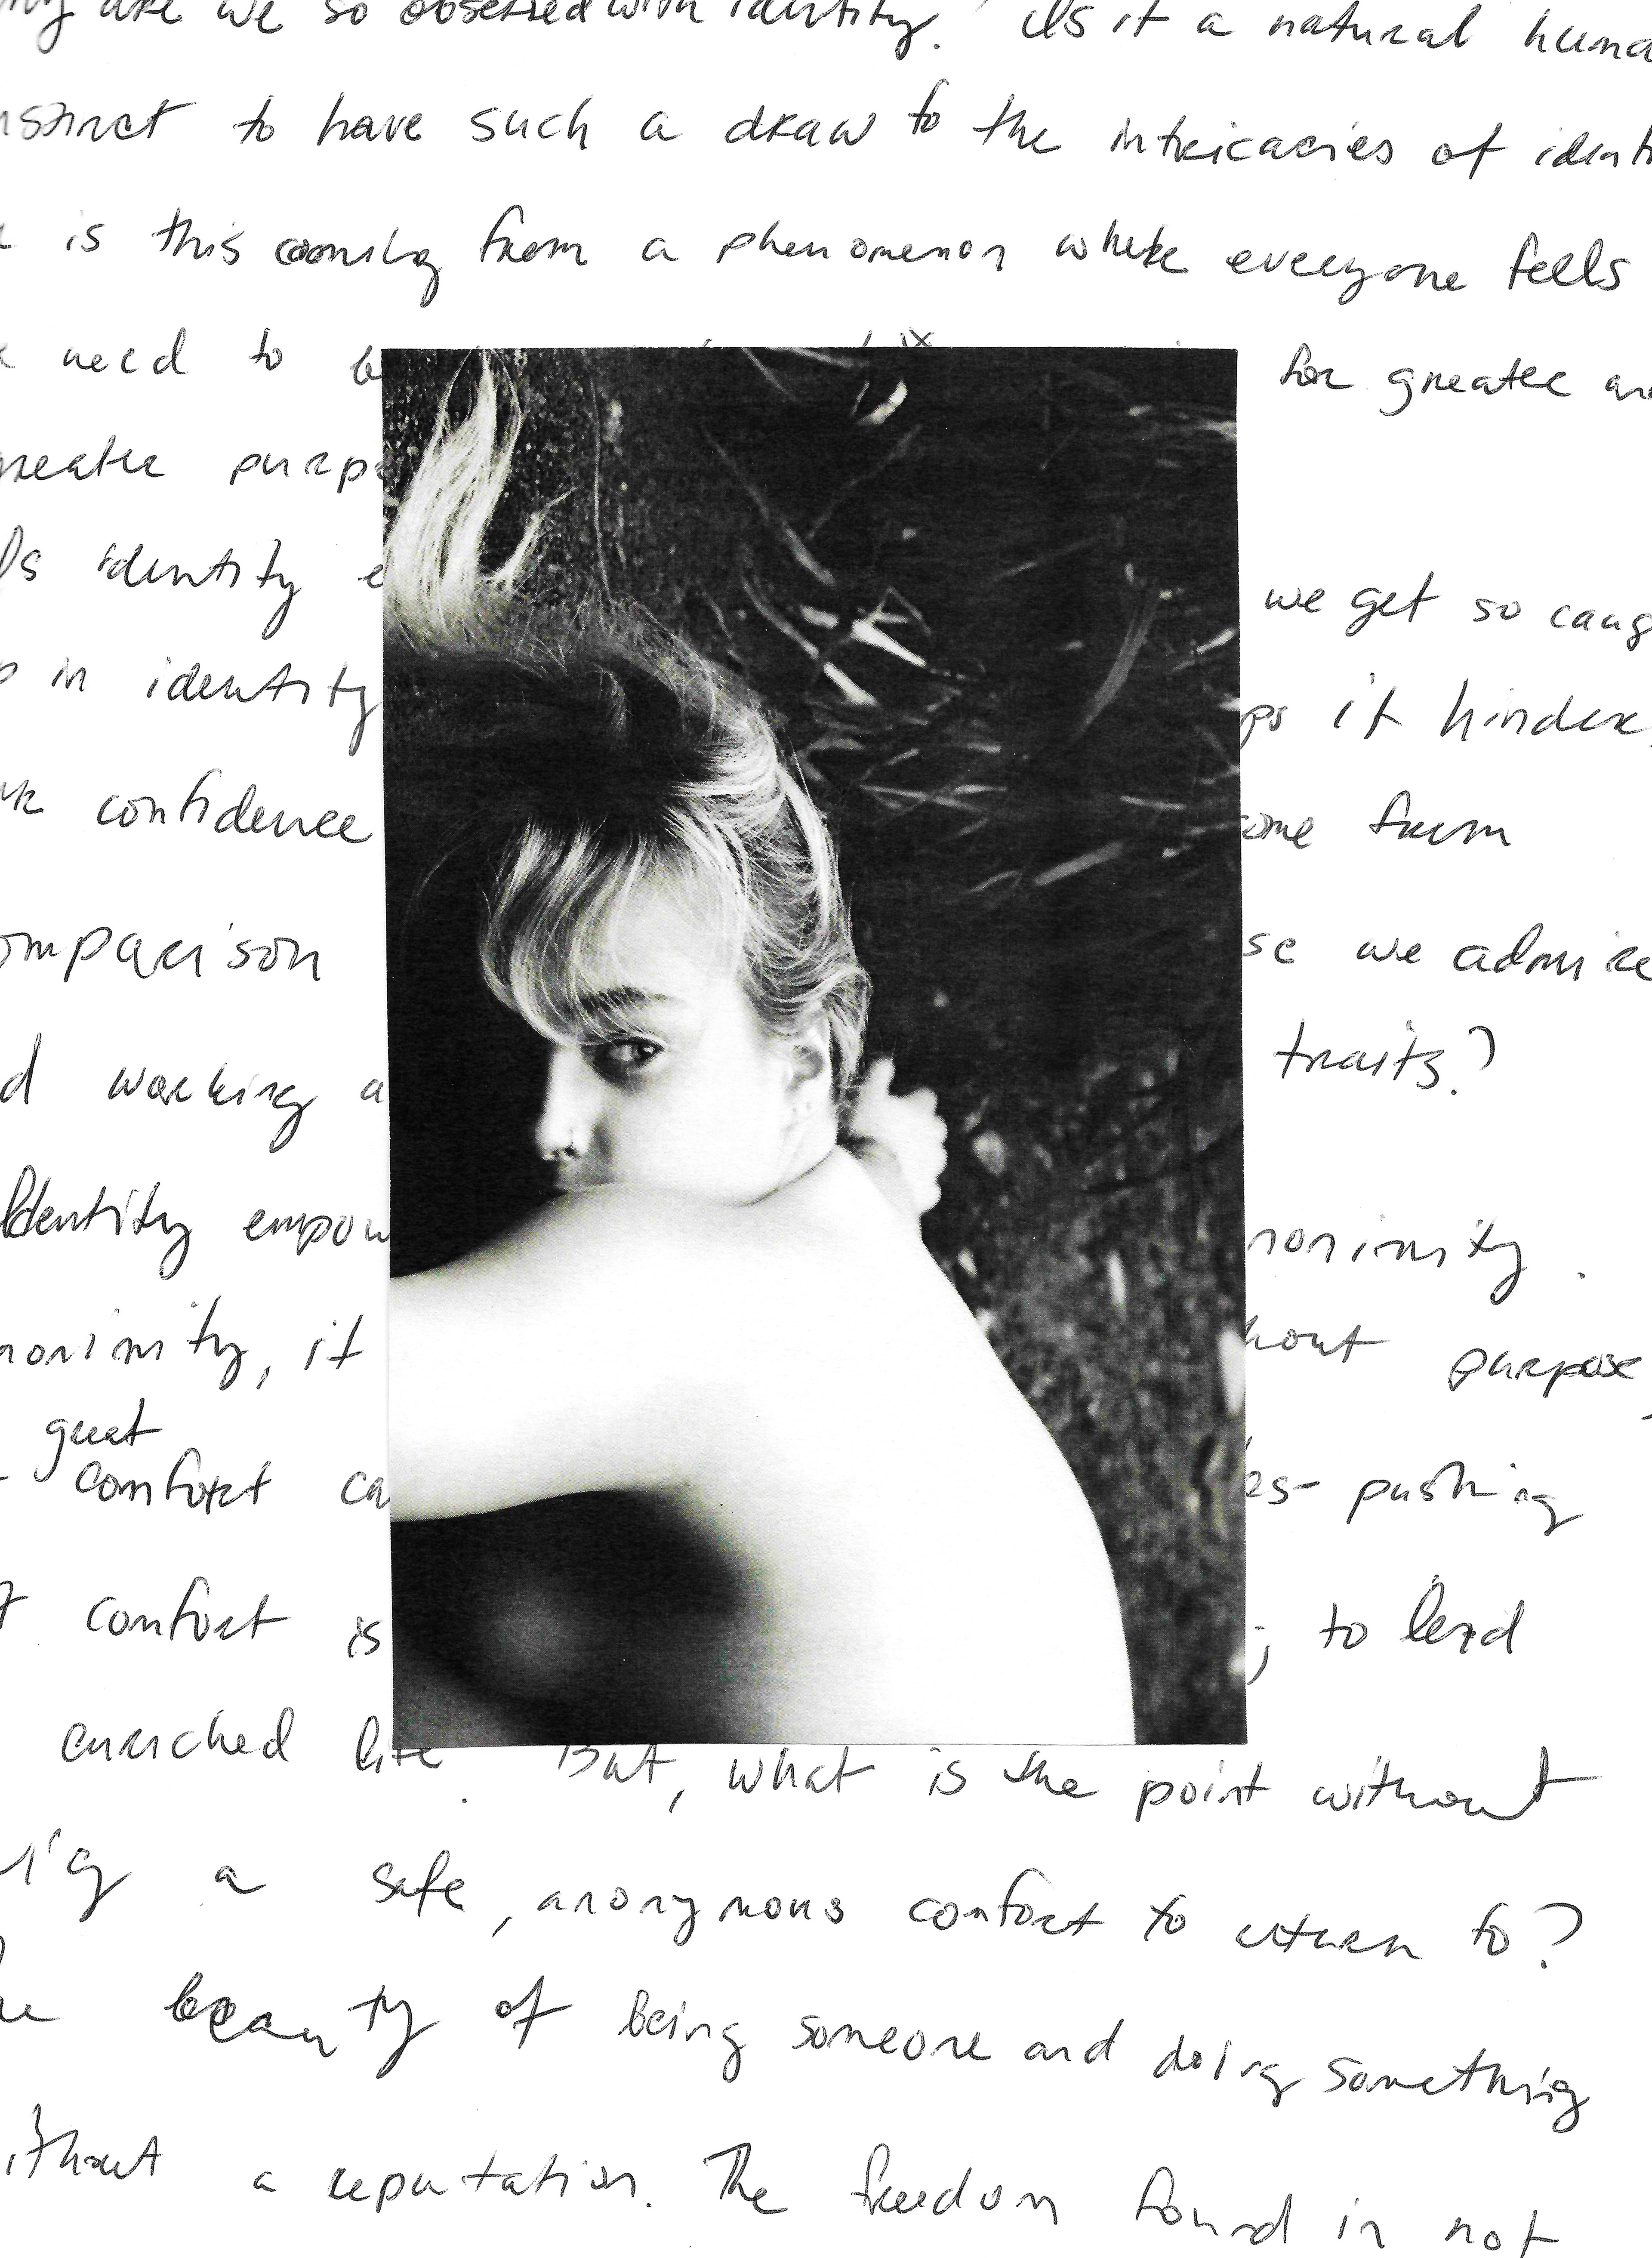 are we so obsessed with identity. Is it a natural huma
nstinct to have such a draw to the intricacies of identi
is this coming from a phenomenon where everyone feels
need to b for greater an
reater purp
Is identity e we get so caug
p in identity ps it hinder
confidence ome from
omparison se we admire
d working a traits?
Identity empow nonimity.
nonimity, it hout purpose,
great
comfort ca es- pushing
comfort is ; to lead
enriched life. But, what is the point without
a safe, anonymous comfort to return to?
beauty of being someone and doing something
ithout a reputation. The freedom found in not